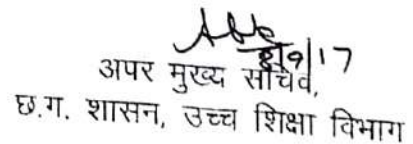 8/9/17
अपर मुख्य सचिव,
छ.ग. शासन, उच्च शिक्षा विभाग